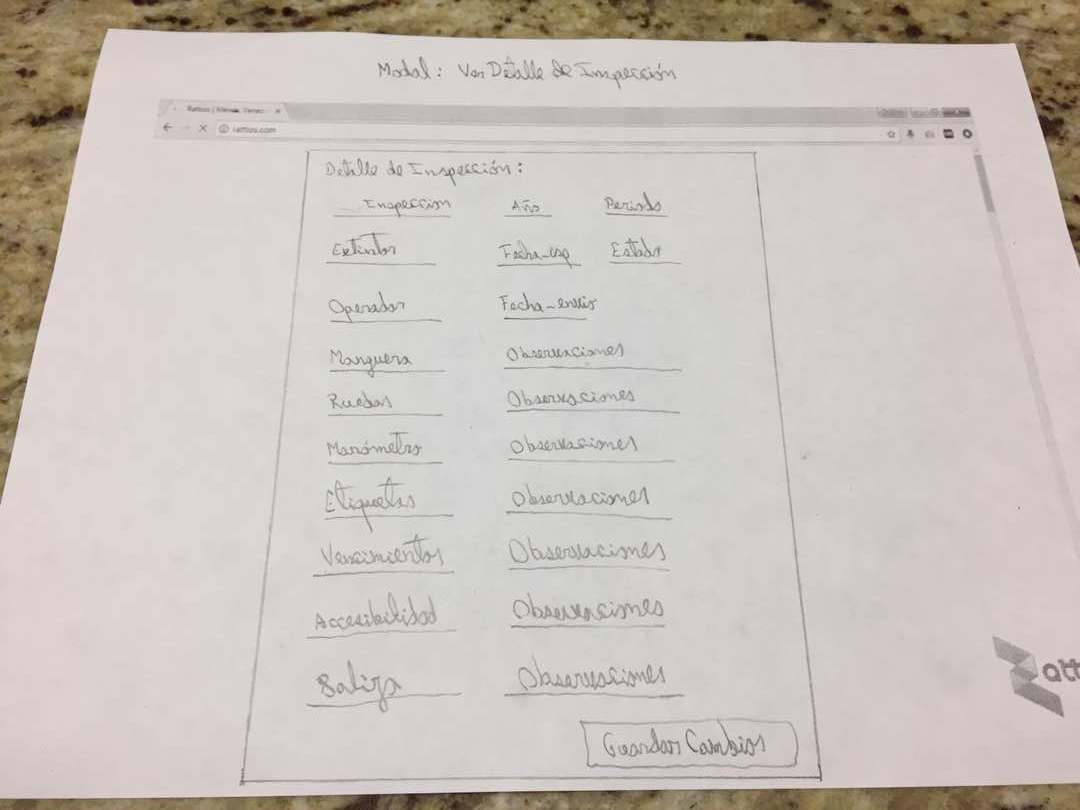 Modal: Ver Detalle de Inspección
Rattios | Menos Temec
rattios.com
Detalle de Inspección:
Inspeccion Año Periodo
Extintor Fecha_esp Estado
Operador Fecha_envio
Manguera Observaciones
Ruedas Observaciones
Manómetro Observaciones
Etiquetas Observaciones
Vencimientos Observaciones
Accesibilidad Observaciones
Baliza Observaciones
att
Guardar Cambios